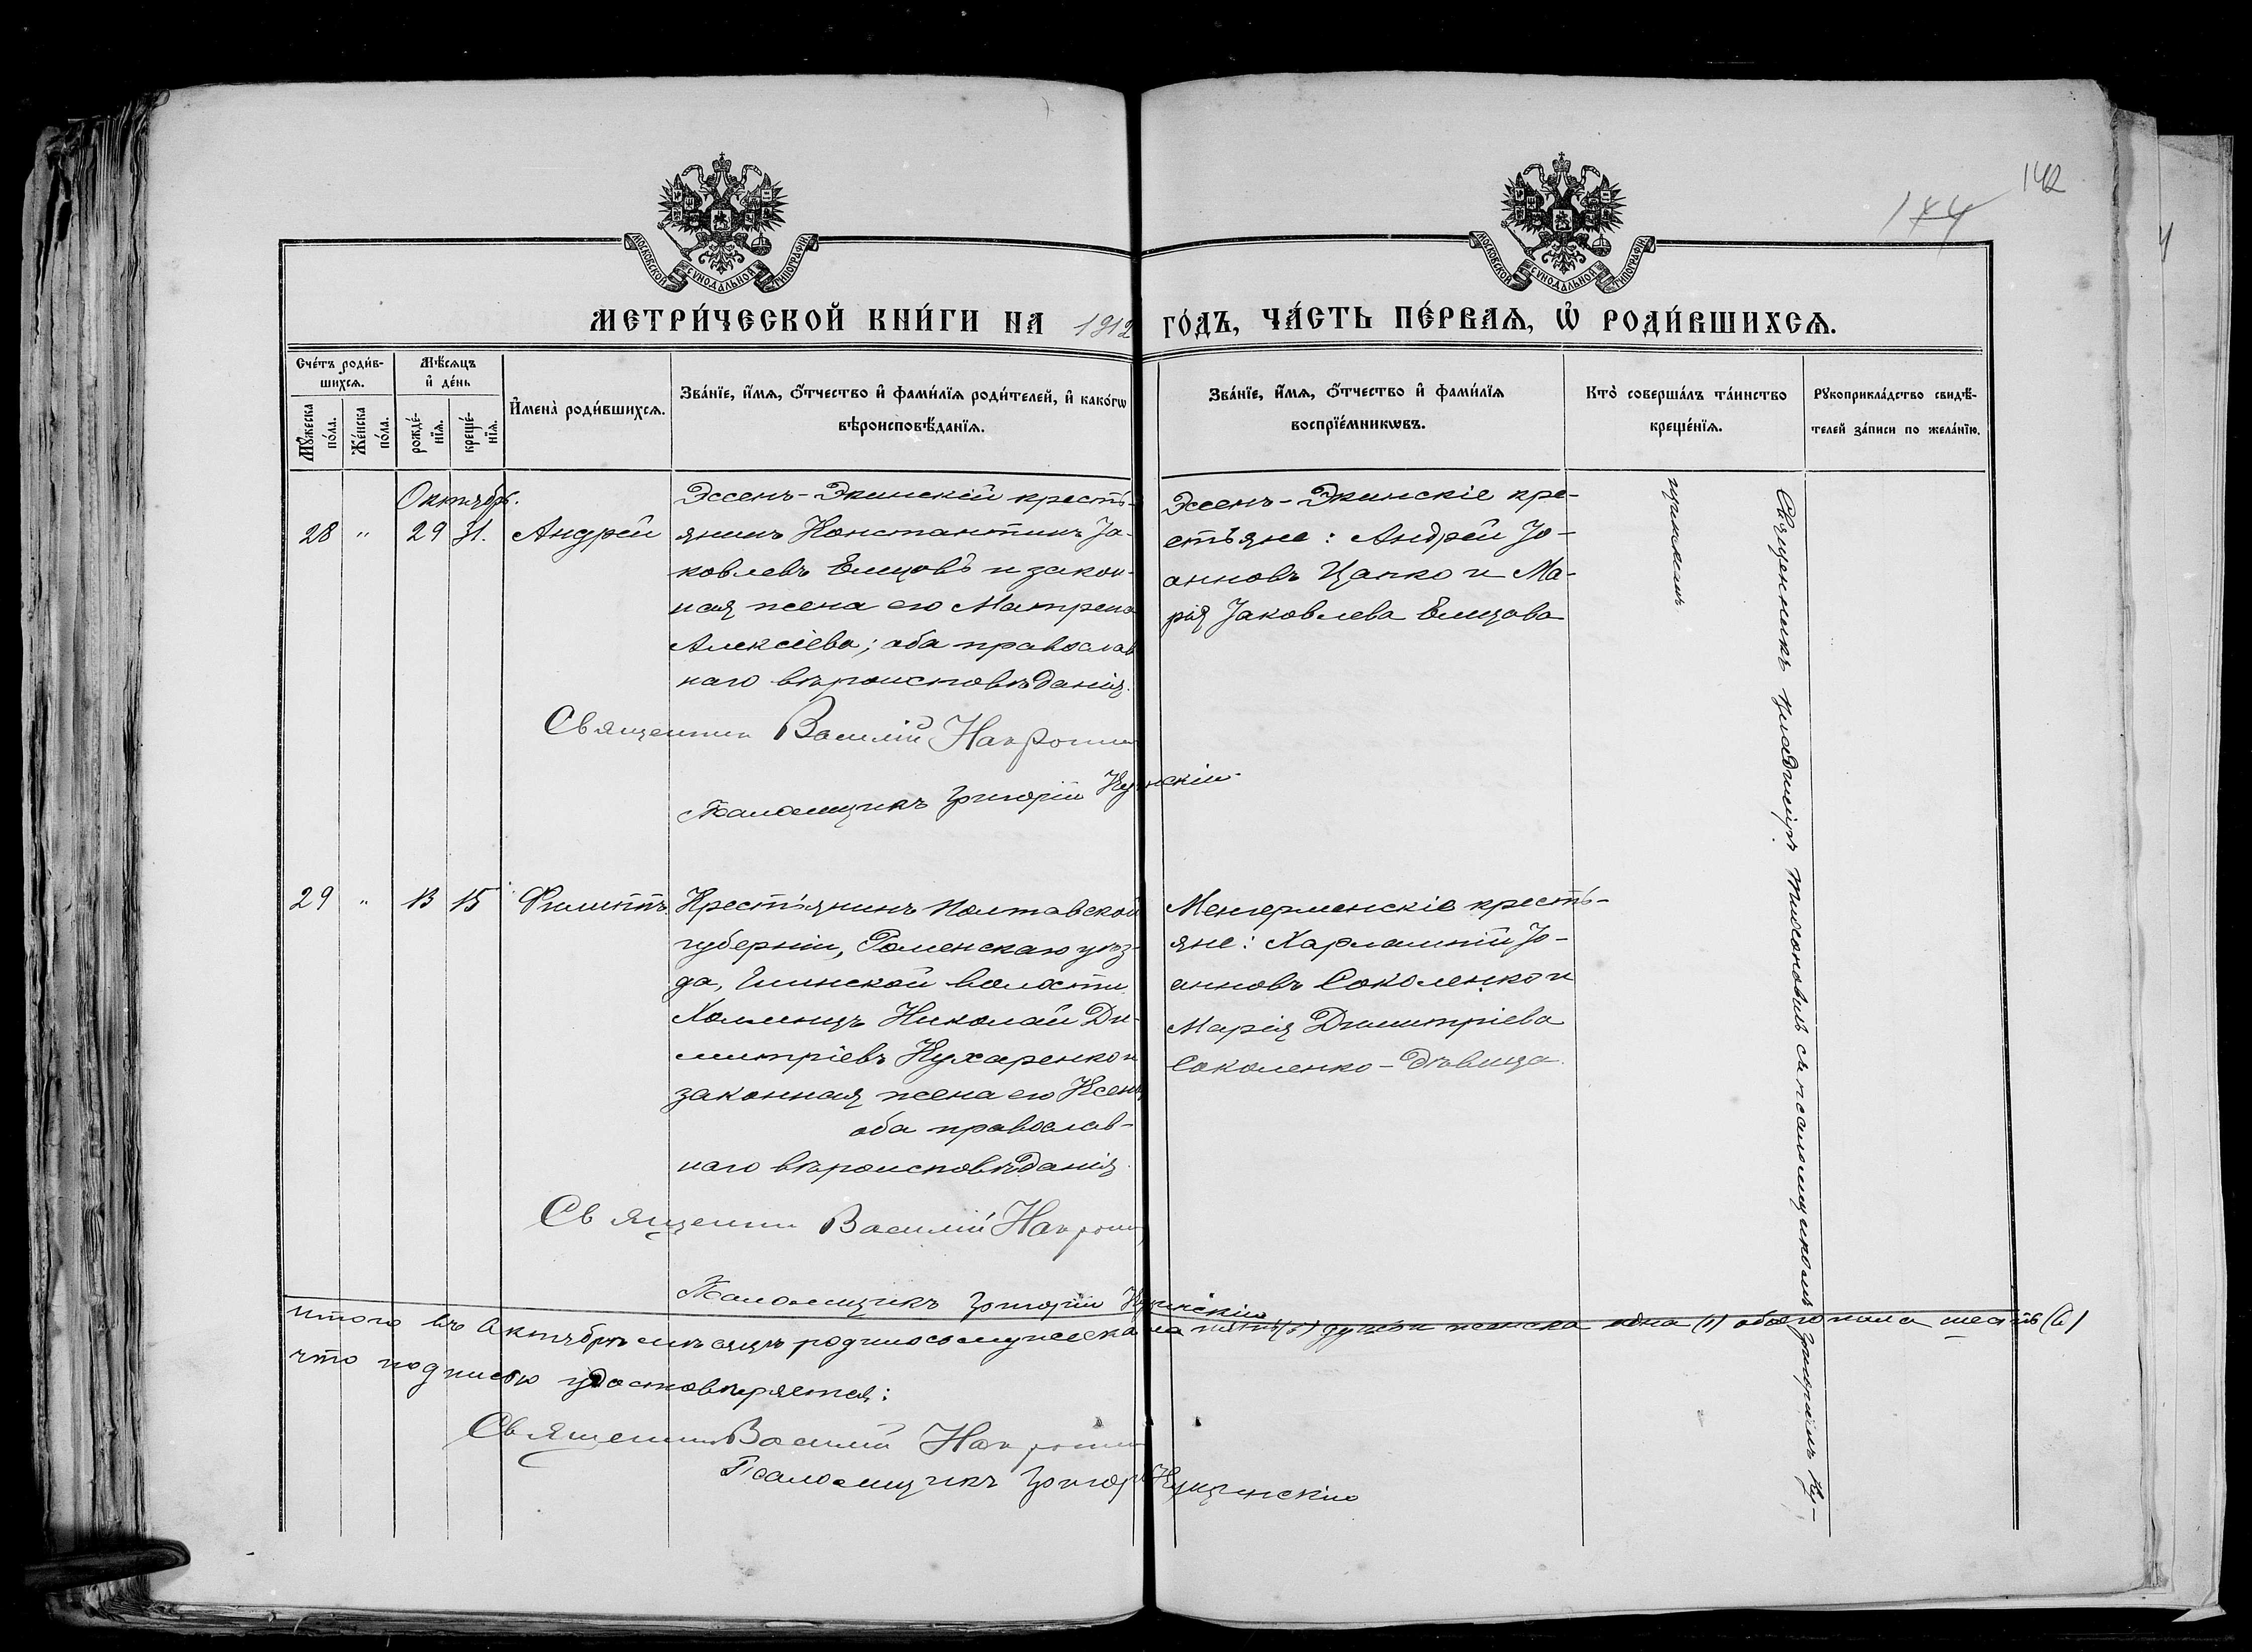 142
144
МОСКОВСКОЙ СѴНОДАЛЬНОЙ ТИПОГРАФІИ
МОСКОВСКОЙ СѴНОДАЛЬНОЙ ТИПОГРАФІИ
МЕТРИ́ЧЕСКОЙ КНИ́ГИ НА 1912 ГО́ДЪ, ЧА́СТЬ ПЕ́РВАЯ, Ѡ РОДИ́ВШИХСЯ.
Сче́тъ роди́в-
шихся.
Мꙋ́жеска по́ла.
Же́нска по́ла.
Мѣ́сяцъ
и҆ де́нь
рожде́-
нїя.
креще́-
нїя.
И҆мена̀ роди́вшихся.
Зва́нїе, и҆́мя, ѻ҆́тчество и҆ фами́лїя роди́телей, и҆ како́гѡ
вѣроисповѣ́данїя.
Зва́нїе, и҆́мя, ѻ҆́тчество и҆ фами́лїя
воспрїе́мникѡвъ.
Кто̀ соверша́лъ та́инство
креще́нїя.
Рꙋкоприкла́дство свидѣ́-
телей за́писи по жела́нїю.
Октябрь.
28 " 29 31. Андрей
Эссенъ-Экинскій кресть-
янинъ Константинъ Іа-
ковлевъ Елицовъ и закон-
ная жена его Матрена
Алексіева; оба православ
наго вѣроисповѣданія.
Эссенъ-Экинскіе кре-
стьяне: Андрей Іо-
анновъ Цапко и Ма-
рія Іаковлева Елицова
Священникъ Владиміръ Тихоновичъ съ псаломщикомъ Григоріемъ Ку-
Священник Василій
Псаломщикъ Григорій
29 " 13 15 Филиппъ
Крестьянинъ Полтавской
губерніи, Роменскаго уѣз-
да, Глинской волости
Николай Ди-
митріевъ Кухаренко и
законная жена его Ксенія
оба православ-
наго вѣроисповѣданія.
Менгерменскіе кресть-
яне: Харлампій Іо-
анновъ Соколенко и
Марія Димитріева
Соколенко-дѣвица.
Священник Василій
Псаломщикъ Григорій
Итого въ Октябрѣ мѣсяцѣ родилось мужеска пола пять (5) душъ и женска одна (1) обоего пола шесть (6)
что подписью удостовѣряется:
Священник Василій
Псаломщикъ Григорій